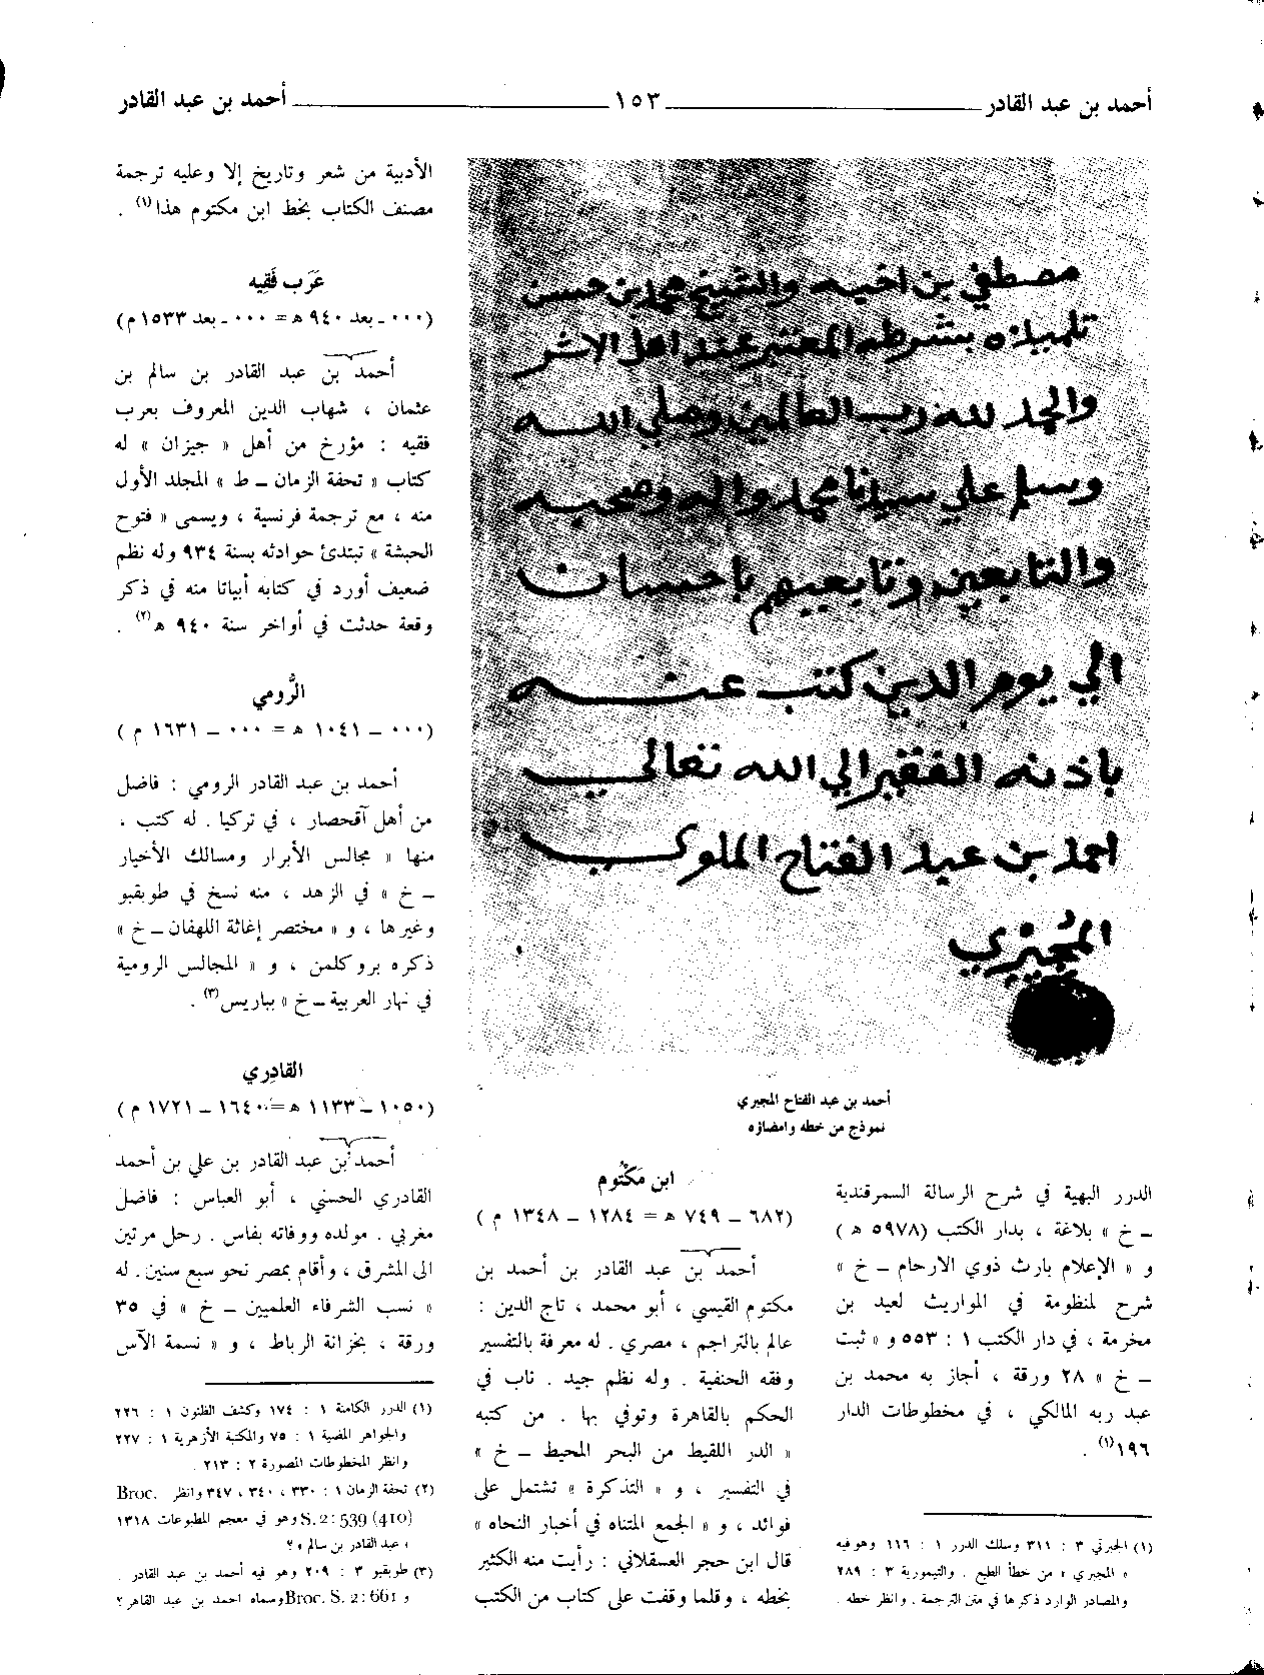 أحمد بن عبد القادر
١٥٣
أحمد بن عبد القادر
مصطفي بن اخيه والشيخ محمد بن حسن
تلميذه بشرطه المعتبر عند اهل الاثر
والحمد لله رب العالمين وصلي الله
وسلم علي سيدنا محمد واله وصحبه
والتابعين وتابعيهم باحسان
الي يوم الدين كتب عنه
باذنه الفقير الي الله تعالي
احمد بن عبد الفتاح الملوي
المجيري
أحمد بن عبد الفتاح المجيري
نموذج من خطه وامضاؤه
الدرر البهية في شرح الرسالة السمرقندية
ـ خ » بلاغة ، بدار الكتب (٥٩٧٨ ه‍ )
و « الإعلام بارث ذوي الارحام ـ خ »
شرح لمنظومة في المواريث لعيد بن
مخرمة ، في دار الكتب ١ : ٥٥٣ و « ثبت
ـ خ » ٢٨ ورقة ، أجاز به محمد بن
عبد ربه المالكي ، في مخطوطات الدار
١٩٦ (١) .
(١) الجبرتي ٣ : ٣١١ وسلك الدرر ١ : ١١٦ وهو فيه
« المجبري » من خطأ الطبع . والتيمورية ٣ : ٢٨٩
والمصادر الوارد ذكرها في متن الترجمة . وانظر خطه .
ابن مَكْتُوم
(٦٨٢ ـ ٧٤٩ ه‍ = ١٢٨٤ ـ ١٣٤٨ م )
أحمد بن عبد القادر بن أحمد بن
مكتوم القيسي ، أبو محمد ، تاج الدين :
عالم بالتراجم ، مصري . له معرفة بالتفسير
وفقه الحنفية . وله نظم جيد . ناب في
الحكم بالقاهرة وتوفي بها . من كتبه
« الدر اللقيط من البحر المحيط ـ خ »
في التفسير ، و « التذكرة » تشتمل على
فوائد ، و « الجمع المتناه في أخبار النحاه »
قال ابن حجر العسقلاني : رأيت منه الكثير
بخطه ، وقلما وقفت على كتاب من الكتب
الأدبية من شعر وتاريخ إلا وعليه ترجمة
مصنف الكتاب بخط ابن مكتوم هذا (١) .
عَرَب فَقِيه
(٠٠٠ ـ بعد ٩٤٠ ه‍ = ٠٠٠ ـ بعد ١٥٣٣ م)
أحمد بن عبد القادر بن سالم بن
عثمان ، شهاب الدين المعروف بعرب
فقيه : مؤرخ من أهل « جيزان » له
كتاب « تحفة الزمان ـ ط » المجلد الأول
منه ، مع ترجمة فرنسية ، ويسمى « فتوح
الحبشة » تبتدئ حوادثه بسنة ٩٣٤ وله نظم
ضعيف أورد في كتابه أبياتا منه في ذكر
وقعة حدثت في أواخر سنة ٩٤٠ ه‍ (٢) .
الرُّومي
(٠٠٠ ـ ١٠٤١ ه‍ = ٠٠٠ ـ ١٦٣١ م )
أحمد بن عبد القادر الرومي : فاضل
من أهل آقحصار ، في تركيا . له كتب ،
منها « مجالس الأبرار ومسالك الأخيار
ـ خ » في الزهد ، منه نسخ في طوبقبو
وغيرها ، و « مختصر إغاثة اللهفان ـ خ »
ذكره بروكلمن ، و « المجالس الرومية
في نهار العربية ـ خ » بباريس (٣) .
القادِري
(١٠٥٠ ـ ١١٣٣ ه‍ = ١٦٤٠ ـ ١٧٢١ م )
أحمد بن عبد القادر بن علي بن أحمد
القادري الحسني ، أبو العباس : فاضل
مغربي . مولده ووفاته بفاس . رحل مرتين
الى المشرق ، وأقام بمصر نحو سبع سنين . له
« نسب الشرفاء العلميين ـ خ » في ٣٥
ورقة ، بخزانة الرباط ، و « نسمة الآس
(١) الدرر الكامنة ١ : ١٧٤ وكشف الظنون ١ : ٢٢٦
والجواهر المضية ١ : ٧٥ والمكتبة الأزهرية ١ : ٢٢٧
وانظر المخطوطات المصورة ٢ : ٢١٣ .
(٢) تحفة الزمان ١ : ٣٣٠ ، ٣٤٠ ، ٣٤٧ وانظر Broc.
S. 2 : 539 (410) وهو في معجم المطبوعات ١٣١٨
« عبد القادر بن سالم » ؟
(٣) طوبقبو ٣ : ٢٠٩ وهو فيه أحمد بن عبد القادر .
و Broc. S. 2 : 661 وسماه احمد بن عبد القاهر ؟